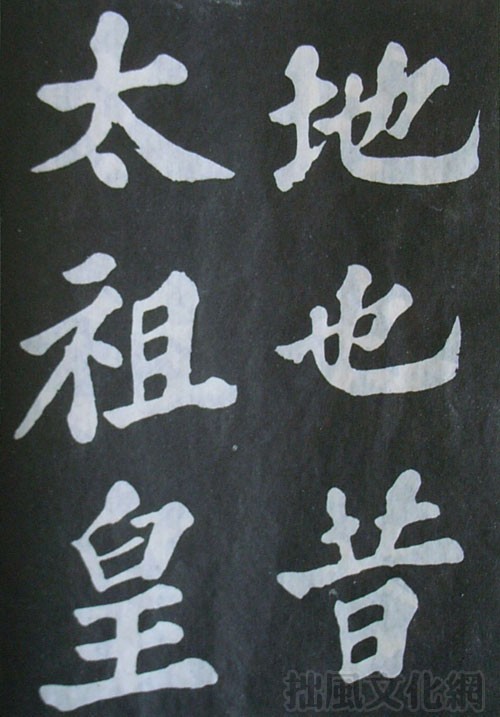 地也昔
太祖皇
拙風文化網